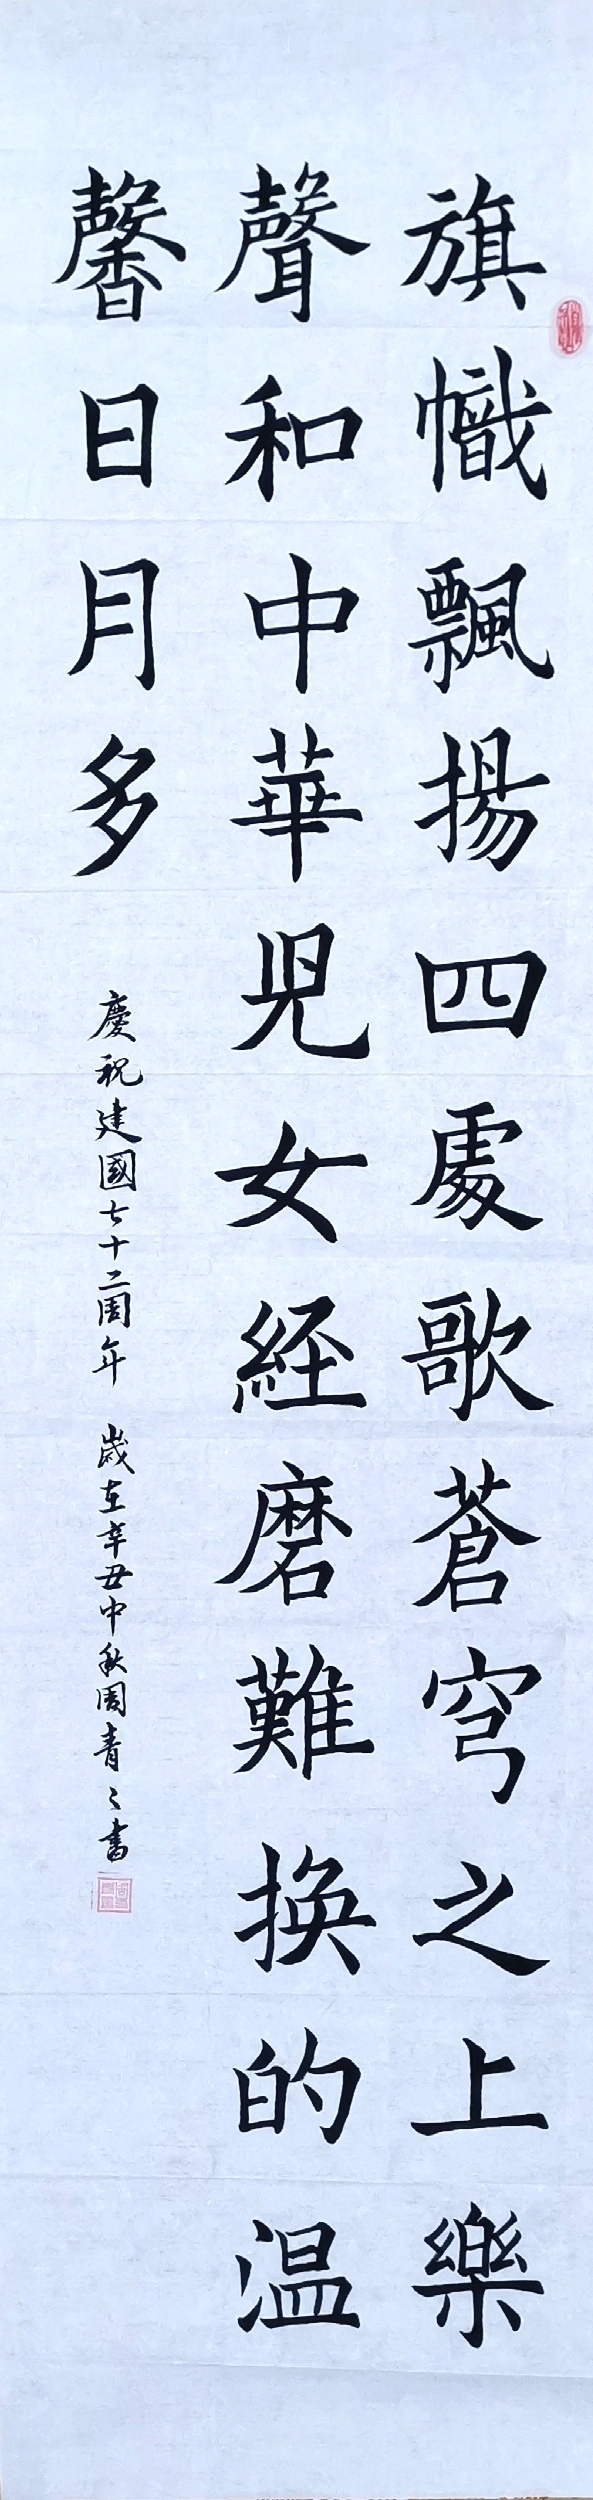 旗幟飄揚四處歌蒼穹之上樂
聲和中華兒女経磨難换的温
馨日月多
慶祝建國七十二周年 歲在辛丑中秋周青々書